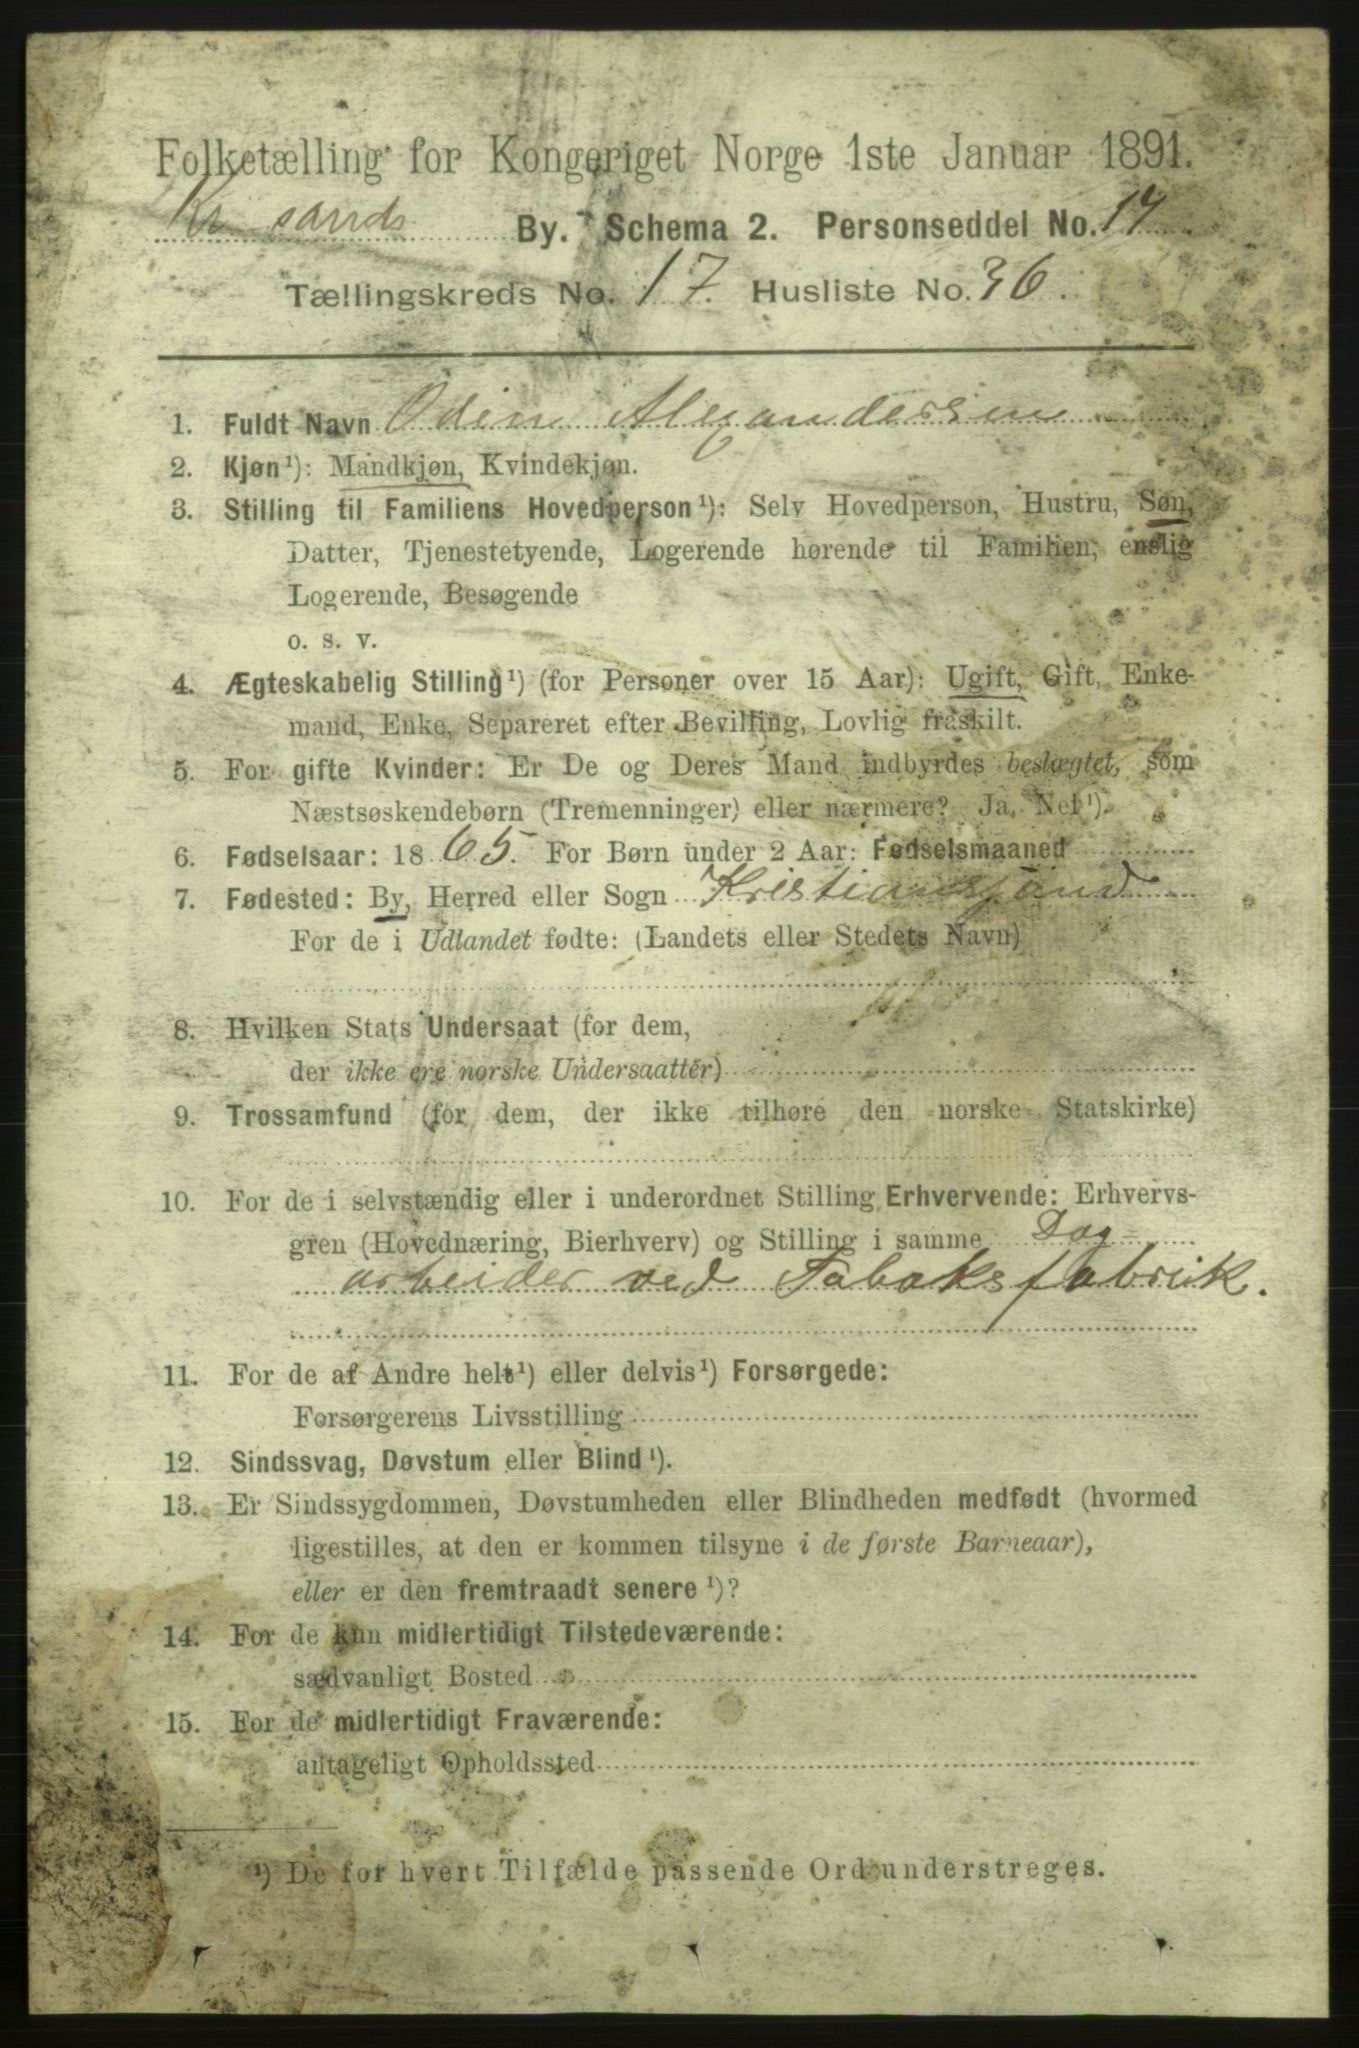 Folketælling for Kongeriget Norge 1ste Januar 1891.
Kr sands By. Schema 2. Personseddel No. 14
Tællingskreds No. 17. Husliste No. 36.
1. Fuldt Navn Odin Alexandersen
2. Kjøn¹): Mandkjøn, Kvindekjøn.
3. Stilling til Familiens Hovedperson¹): Selv Hovedperson, Hustru, Søn,
Datter, Tjenestetyende, Logerende hørende til Familien, enslig
Logerende, Besøgende
o. s. v.
4. Ægteskabelig Stilling¹) (for Personer over 15 Aar): Ugift, Gift, Enke-
mand, Enke, Separeret efter Bevilling, Lovlig fraskilt.
5. For gifte Kvinder: Er De og Deres Mand indbyrdes beslægtet, som
Næstsøskendebørn (Tremenninger) eller nærmere? Ja, Nei¹).
6. Fødselsaar: 1865. For Børn under 2 Aar: Fødselsmaaned
7. Fødested: By, Herred eller Sogn Kristianssand
For de i Udlandet fødte: (Landets eller Stedets Navn)
8. Hvilken Stats Undersaat (for dem,
der ikke ere norske Undersaatter)
9. Trossamfund (for dem, der ikke tilhøre den norske Statskirke)
10. For de i selvstændig eller i underordnet Stilling Erhvervende: Erhvervs-
gren (Hovednæring, Bierhverv) og Stilling i samme Dag-
arbeider ved Tabaksfabrik.
11. For de af Andre helt¹) eller delvis¹) Forsørgede:
Forsørgerens Livsstilling
12. Sindssvag, Døvstum eller Blind¹).
13. Er Sindssygdommen, Døvstumheden eller Blindheden medfødt (hvormed
ligestilles, at den er kommen tilsyne i de første Barneaar),
eller er den fremtraadt senere¹)?
14. For de kun midlertidigt Tilstedeværende:
sædvanligt Bosted
15. For de midlertidigt Fraværende:
antageligt Opholdssted
¹) De for hvert Tilfælde passende Ord understreges.